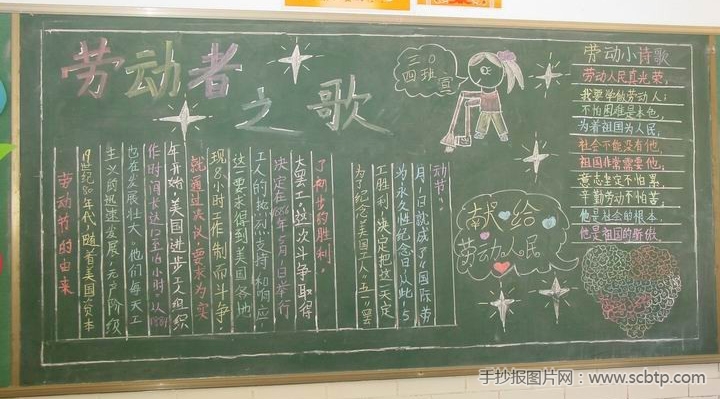 劳动者之歌
劳动节的由来
19世纪80年代,随着美国资本
主义的迅速发展,无产阶级
也在发展壮大。他们每天工
作时间长达12至16小时。从1884
年开始,美国进步工人组织
就通过决议,要求为实
现8小时工作制而斗争
这一要求得到美国各地
工人的热烈支持和响应,
决定在1886年5月1日举行
大罢工,这次斗争取得
了初步的胜利,
为了纪念美国工人“五一”罢
工胜利,决定把这一天定
为永久性纪念日从此5
月1日就成了“国际劳
动节。
四班宣
献给
劳动人民
劳动小诗歌
劳动人民真光荣,
我要学做劳动人;
不怕困难是本色,
为着祖国为人民;
社会不能没有他,
祖国非常需要他;
意志坚定不怕累,
辛勤劳动不怕苦;
他是社会的根本,
他是祖国的骄傲
手抄报图片网:www.scbtp.com